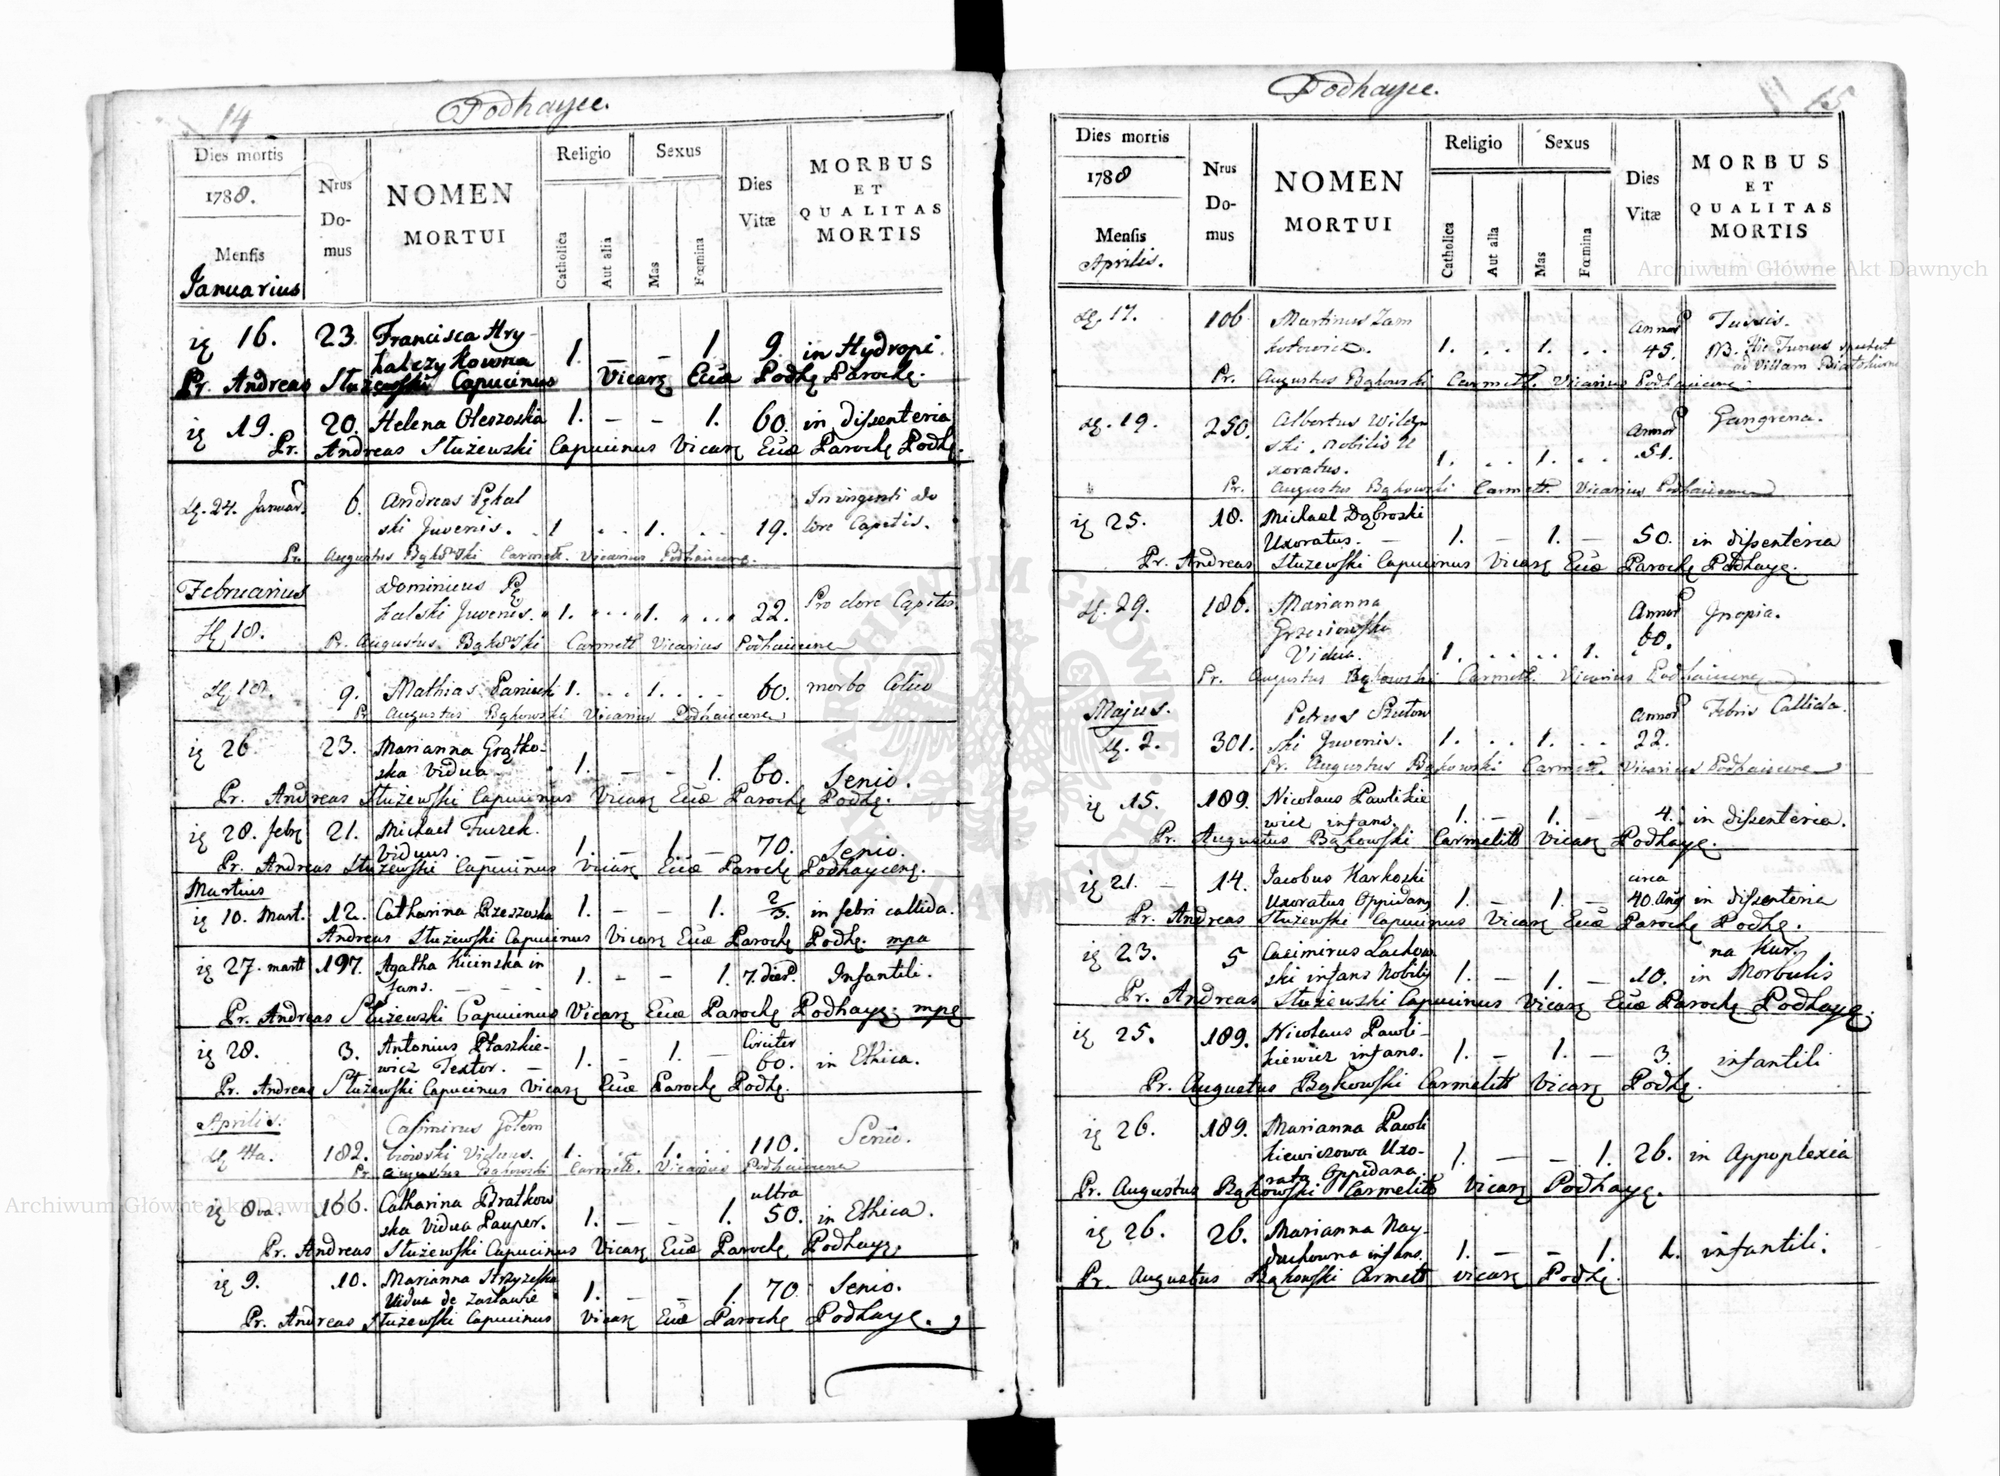 14
Podhayce.
Dies mortis
1788.
Mensis
Januarius
Nrus
Do-
mus
NOMEN
MORTUI
Religio
Catholica
Aut alia
Sexus
Mas
Fœmina
Dies
Vitæ
MORBUS
ET
QUALITAS
MORTIS
16. 23. Francisca Hry-
1. – – 1 9. in Hydropi.
Pr. Andreas Służewski Capucinus Vicarę Eccæ Podhę Parochę.
19. 20. Helena Oleszoska 1. – – 1. 60. in dissenteria
Pr. Andreas Służewski Capucinus Vicarę Eccæ Parochę Podhę.
24. Januar. 6. Andreas Pękal In ingenti do
ski Juvenis. 1 . . 1. . . 19. lore Capitis.
Pr. Augustus Bąkowski Carmelt. Vicarius Podhaicene.
Februarius Dominicus Pę
kalski Juvenis. 1. . . 1. . . 22. Pro dolore Capitis.
18. Pr. Augustus Bąkowski Carmelt Vicarius Podhaicene
18. 9. Mathias 1. . . 1. . . 60. morbo Colico
Pr. Augustus Bąkowski Vicarius Podhaicene
26. 23. Marianna Grątko-
ska Vidua 1. – – 1. 60. Senio.
Pr. Andreas Służewski Capucinus Vicarę Eccæ Parochę Podhę.
28. febr 21. Michael
Viduus. 1. – 1 – 70. Senio.
Pr. Andreas Służewski Capucinus Vicarę Eccæ Parochę Podhayceng.
Martius
10. Mart. 12. Catharina Rzeszoska 1. – – 1. 2/3. in febri callida.
Andreas Służewski Capucinus Vicarę Eccæ Parochę Podhę. mpa
27. martt 197. Agatha Kicinska in
fans. – – – 1. – – 1. 7 dier. Infantili.
Pr. Andreas Służewski Capucinus Vicarę Eccæ Parochę Podhayę. mpę
28. 3. Antonius Ptaszkie- Circiter
wicz Textor. – 1. – 1. – 60. in Ethica.
Pr. Andreas Służewski Capucinus Vicarę Eccæ Parochę Podhę.
Aprilis. Casimirus Gołem
4ta. 182. biowski Viduus. 1. . . 1. . . 110. Senio.
Pr. Augustus Bąkowski Carmelt. Vicarius Podhaicene
8va. 166. Catharina Bratkow ultra
ska Vidua Pauper. 1. – – 1. 50. in Ethica.
Pr. Andreas Służewski Capucinus Vicarę Eccæ Parochę Podhayę.
9. 10. Marianna Strzyzeska
Vidua de Zasławie 1. – – 1. 70. Senio.
Pr. Andreas Służewski Capucinus Vicarę Eccæ Parochę Podhayę.
15
Podhayce.
Dies mortis
1788
Mensis
Aprilis.
Nrus
Do-
mus
NOMEN
MORTUI
Religio
Catholica
Aut alia
Sexus
Mas
Fœmina
Dies
Vitæ
MORBUS
ET
QUALITAS
MORTIS
17. 106 Martinus Zam Annor Tussis.
1. . . 1. . . 45. NB. Hic Funus
ad Villam
Pr. Augustus Bąkowski Carmelt. Vicarius Podhaicene.
19. 250. Albertus Wilczyn Annor Gangrena.
ski nobilis U
xoratus. 1. . . 1. . . 51.
Pr. Augustus Bąkowski Carmelt. Vicarius Podhaicene
25. 18. Michael Dąbroski
Uxoratus. – 1. – 1. – 50. in dissenteria
Pr. Andreas Służewski Capucinus Vicarę Eccæ Parochę Podhayę.
29. 186. Marianna Annor Inopia.
60.
Vidua. 1. . . . . 1.
Pr. Augustus Bąkowski Carmelt. Vicarius Podhaicene
Majus. Petrus Szutow Annor Febris Callida.
2. 301. ski Juvenis. 1. . . 1. . . 22.
Pr. Augustus Bąkowski Carmelt. Vicarius Podhaicene
15. 189. Nicolaus Pawlikie
wicz infans. 1. – 1. – 4. in dissenteria.
Pr. Augustus Bąkowski Carmelitt Vicarę Podhayę.
21. – 14. Jacobus Karkoski circa
Uxoratus Oppidanę 1. – 1. – 40. in dissenteria
Pr. Andreas Służewski Capucinus Vicarę Eccæ Parochę Podhę.
23. 5 Casimirus Lachow
ski infans Nobilę 1. – 1. – 10. in Morbulis
Pr. Andreas Służewski Capucinus Vicarę Eccæ Parochę Podhayę.
25. 189. Nicolaus Pawli-
kiewicz infans. 1. – 1. – 3. infantili
Pr. Augustus Bąkowski Carmelitt Vicarę Podhę.
26. 189. Marianna Pawli
kiewiczowa Uxo- 1. – – 1. 26. in Appoplexia
rata Oppidana.
Pr. Augustus Bąkowski Carmelitt Vicarę Podhayę.
26. 26. Marianna Nay-
duchowna infans. 1. – – 1. 1. infantili.
Pr. Augustus Bąkowski Carmelt vicarę Podhę.
Archiwum Główne Akt Dawnych
Archiwum Główne Akt Dawnych
ARCHIWUM GŁÓWNE AKT DAWNYCH